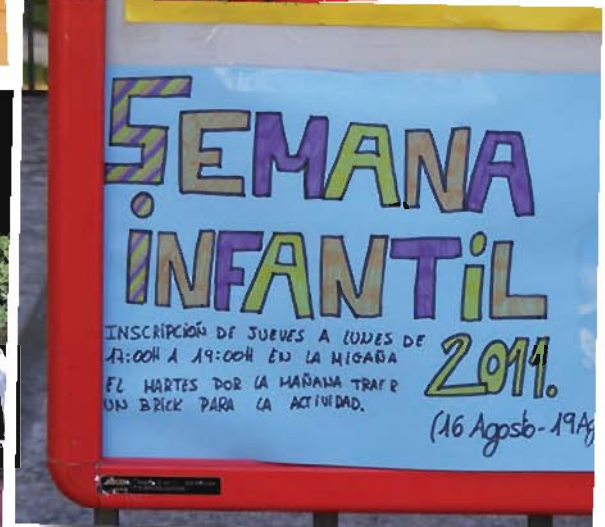 SEMANA
INFANTIL
INSCRIPCIÓN DE JUEVES A LUNES DE
17:00H A 19:00H EN LA MIGAÑA
EL MARTES POR LA MAÑANA TRAER
UN BRICK PARA LA ACTIVIDAD.
2011.
(16 Agosto - 19 Ag